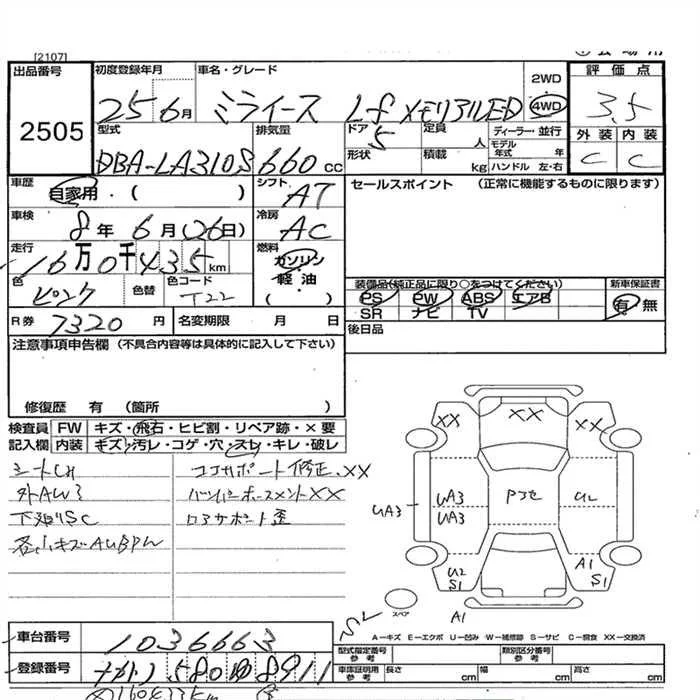 [2107]
出品番号
2505
初度登録年月
25 6月
車名・グレード
ミライース Lf メモリアルED
2WD
4WD
評価点
3.5
外装 内装
C C
型式
DBA-LA310S
排気量
660 cc
ドア
5
形状
定員
人
積載
kg
ディーラー・並行
モデル年式 年
ハンドル 左・右
車歴
自家用・( )
シフト
AT
セールスポイント (正常に機能するものに限ります)
車検
8年 6月(26日)
冷房
AC
走行
16万0千435km
燃料
ガソリン
軽・油
( )
色
ピンク
色替
色コード
T22
装備品(純正品に限り○をつけてください)
PS PW ABS エアB
SR ナビ TV
新車保証書
有 無
R券 7320円
名変期限 月 日
後日品
注意事項申告欄 (不具合内容等は具体的に記入して下さい)
修復歴 有 (箇所 )
検査員 FW キズ・飛石・ヒビ割・リペア跡・×要
記入欄 内装 キズ・汚レ・コゲ・穴・スレ・キレ・破レ
シートCH
外AW3
下廻りSC
各小キズAUBPW
コアサポート修正、XX
バンパーホースメントXX
ロアサポート歪
XX XX XX
UA3
UA3
UA3
Pコセ
U2
U2
S1
A1
S1
A1
スペア
A-キズ E-エクボ U-凹み W-補修跡 S-サビ C-腐食 XX-交換済
車台番号
1036663
登録番号
580 8911
型式指定番号
参考
類別区分番号
参考
車庫証明用
参考
長さ cm
幅 cm
高さ cm